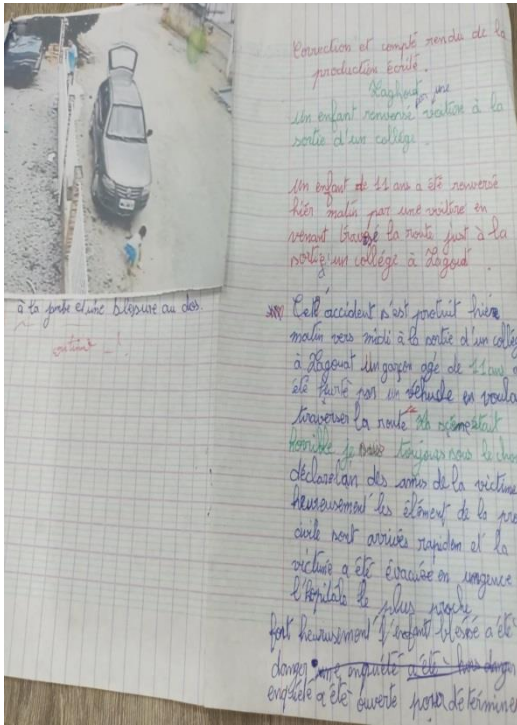 à la jambe et une blessure au dos.
Correction et compte rendu de la
production écrite.
Laghouat
Un enfant renversé par une voiture à la
sortie d'un collège.
Un enfant de 11 ans a été renversé
hier matin par une voiture en
venant la route just à la
sortie d'un collège à Lagouat.
Cett accident s'est protuit hier
matin vers midi à la sortie d'un collèg
à Lagouat Un garçon agé de 11 ans
été par un véhicule en voula
traverser la route " était
horrible je toujours sous le choc
des amis de la victime
heureusement les élément de la pro
civile sont arrivés rapidem et la
victime a été évacuée en urgence
l'hôpitale le plus proche
fort heurusement l'enfant blessé a été
danger une enquété a été hors danger
enquété a été ouverte pour déterminer